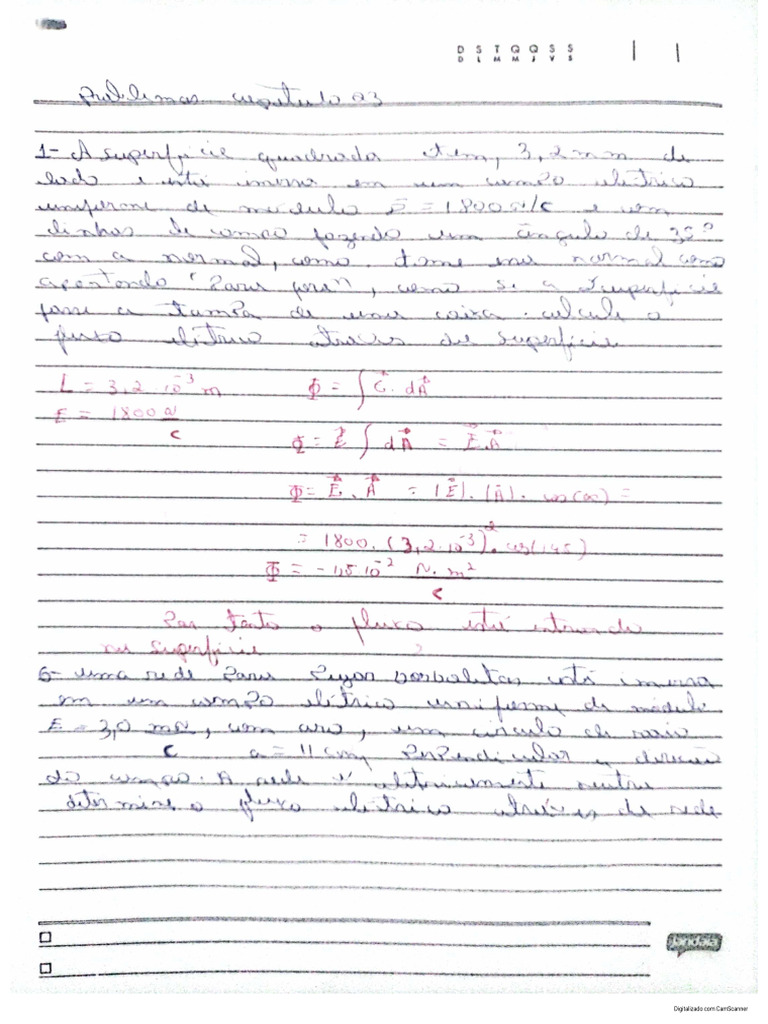 D S T Q Q S S
D L M M J V S
Problemas capitulo 23
1- A superficie quadrada tem, 3,2 mm de
lado e está imersa em um campo elétrico
uniforme de modulo E = 1800 N/C e com
linhas de campo fazendo um ângulo de 35°
com a normal, como. tome essa normal como
apontando "para fora", como se a superficie
fosse a tampa de uma caixa. calcule o
fluxo elétrico através da superficie
L = 3,2 · 10⁻³ m
Φ = ∫ E⃗ · dA⃗
E = 1800 N/C
Φ = E⃗ ∫ dA⃗ = E⃗.A⃗
Φ = E⃗ . A⃗ = |E⃗| . |A⃗| . cos(∞) =
= 1800. (3,2·10⁻³)². cos(145)
Φ = -1,5·10⁻² N·m²/C
Por tanto o fluxo está entrando
na superficie
6- uma rede para pegar borboletas está imersa
em um campo elétrico uniforme de modulo
E = 3,0 mN/C, com aro, um circulo de raio
a = 11 cm, perpendicular a direção
do campo. A rede é eletricamente neutra
determine o fluxo elétrico através da rede
Jandaia
Digitalizado com CamScanner